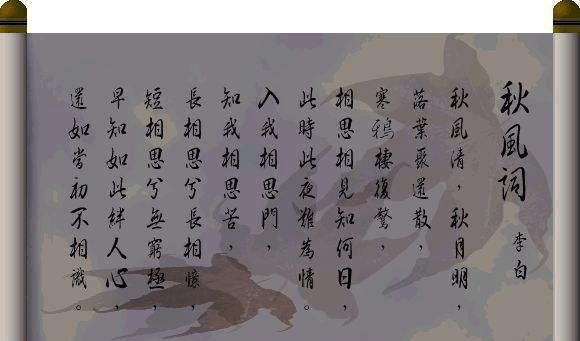 秋風詞
李白
秋風清，秋月明，
落葉聚還散，
寒鴉棲復驚，
相思相見知何日，
此時此夜難為情。
入我相思門，
知我相思苦，
長相思兮長相憶，
短相思兮無窮極，
早知如此絆人心，
還如當初不相識。